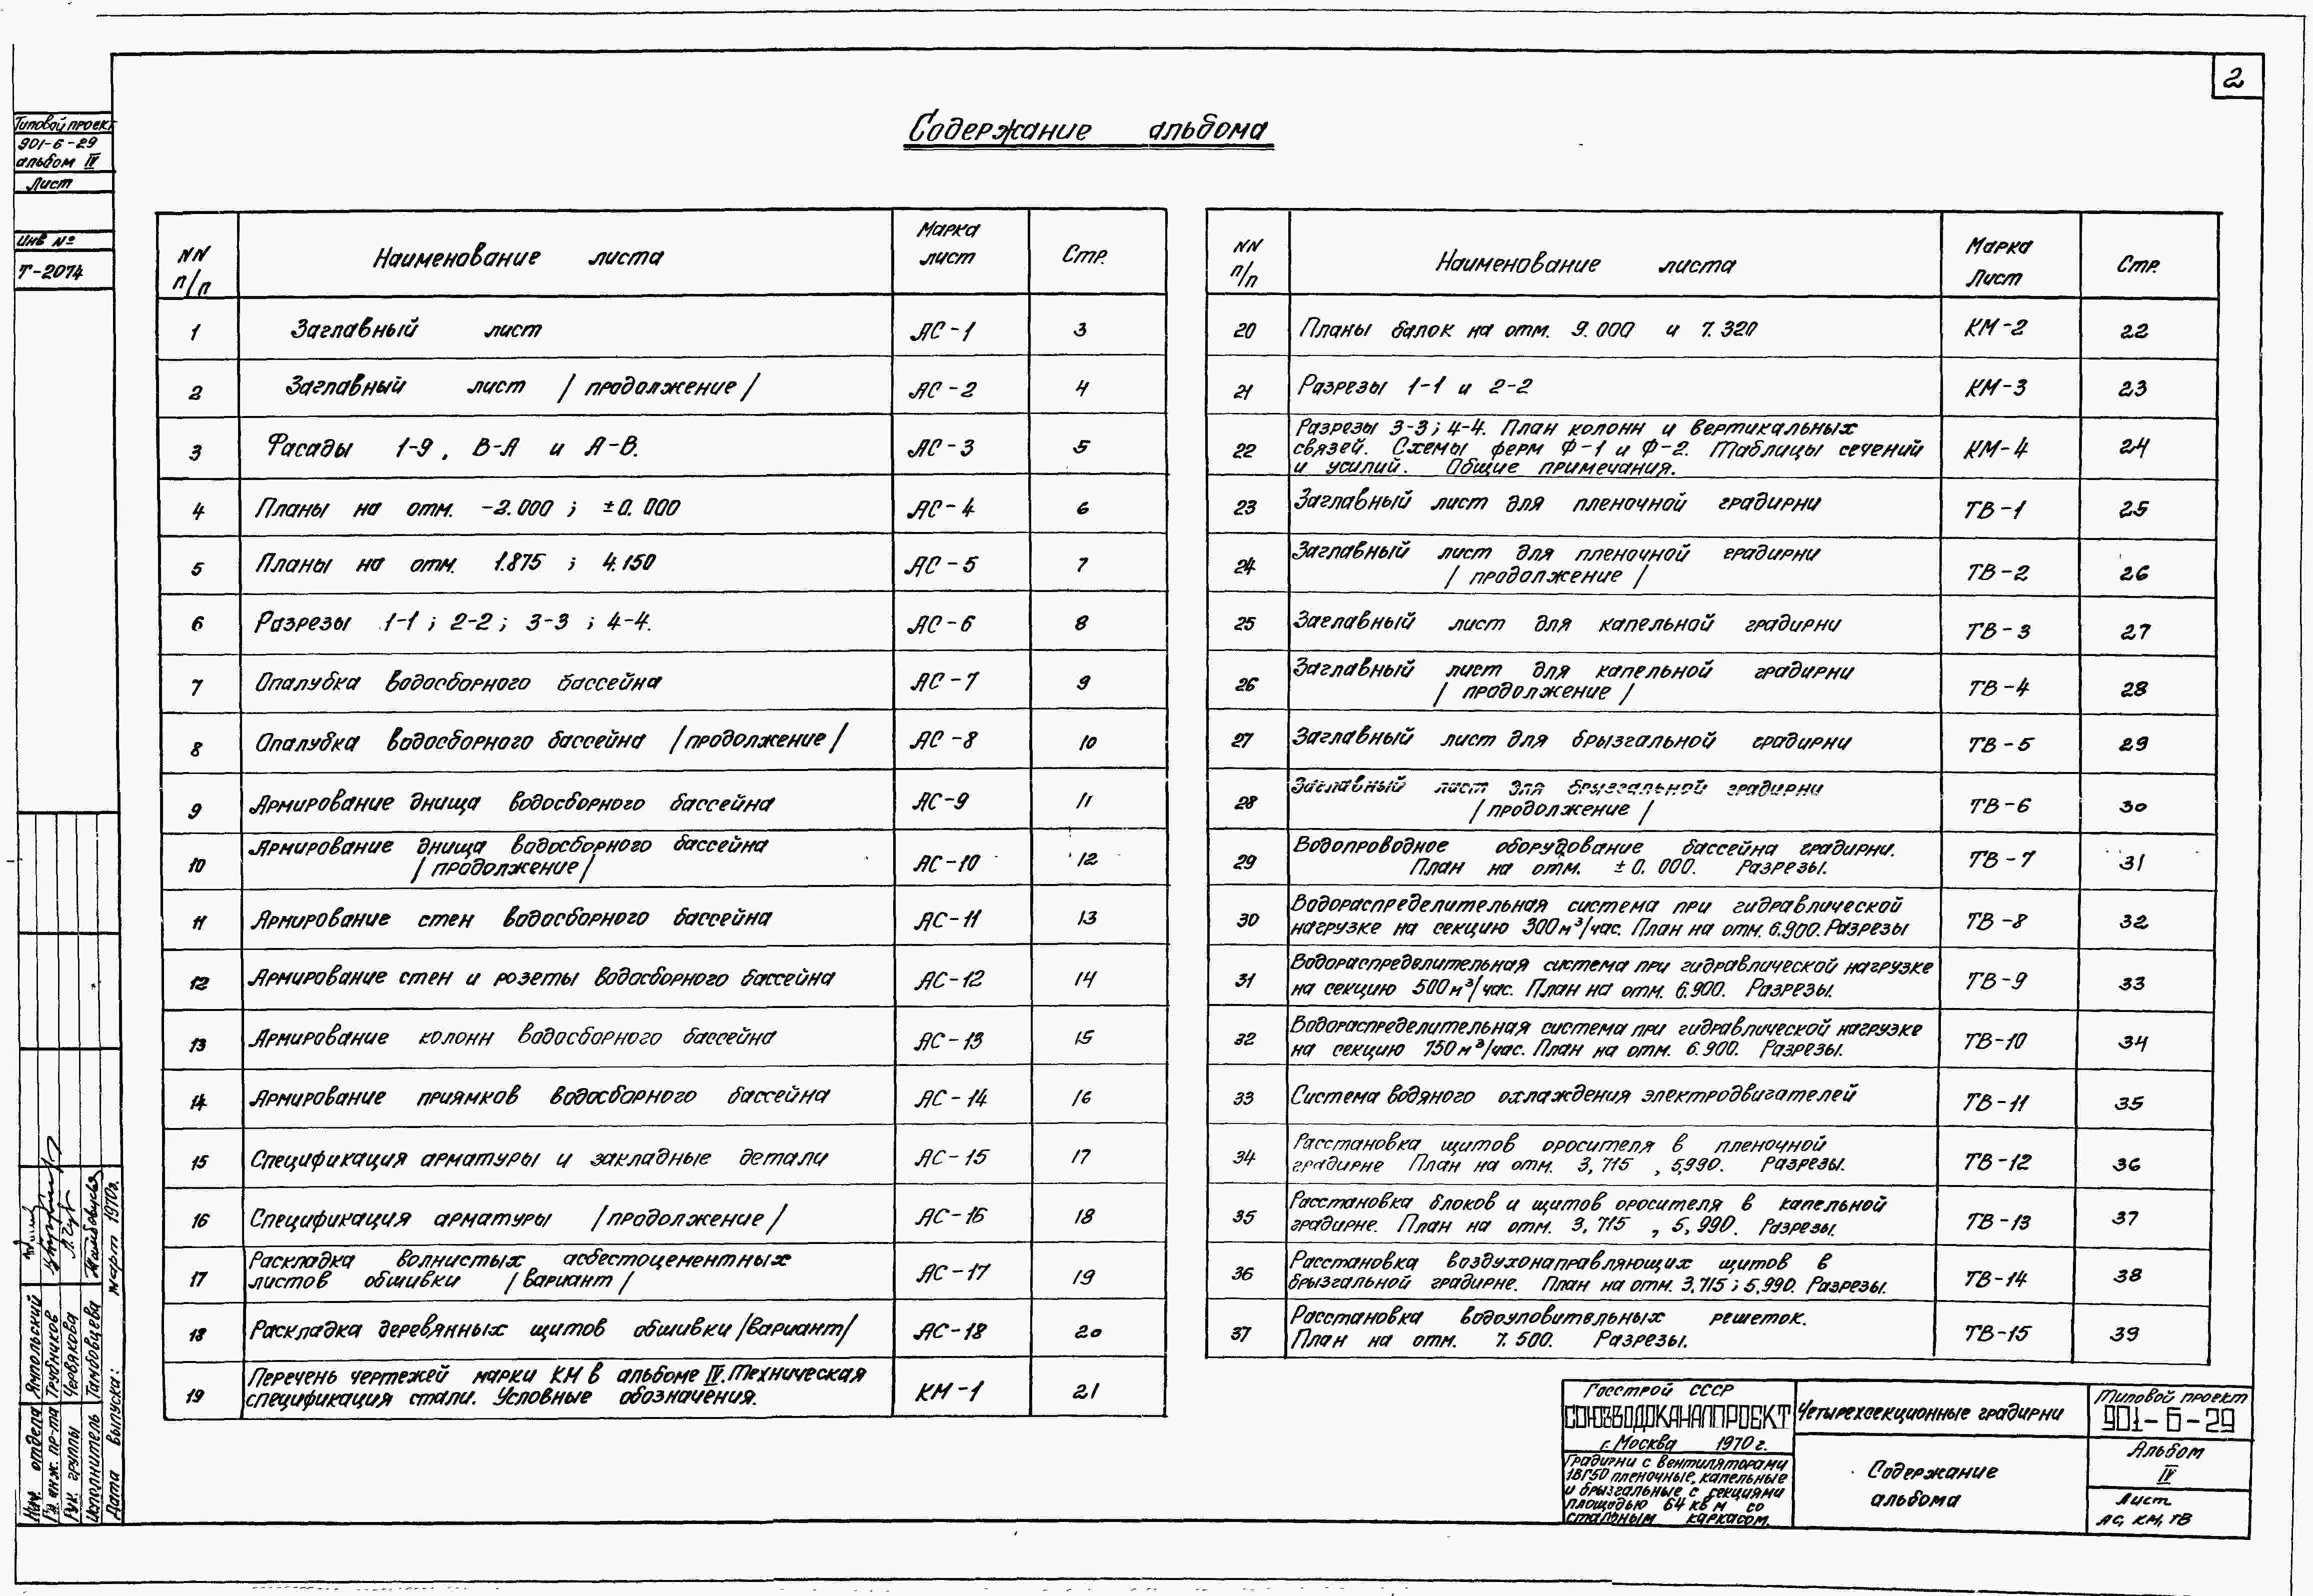 2
Содержание альбома
Типовой проект
901-6-29
альбом IV
Лист
Инв №
Т-2074
NN п/п Наименование листа Марка лист Стр.
1 Заглавный лист АС-1 3
2 Заглавный лист /продолжение/ АС-2 4
3 Фасады 1-9, В-А и А-В. АС-3 5
4 Планы на отм. -2.000; ±0.000 АС-4 6
5 Планы на отм. 1.875; 4.150 АС-5 7
6 Разрезы 1-1; 2-2; 3-3; 4-4. АС-6 8
7 Опалубка водосборного бассейна АС-7 9
8 Опалубка водосборного бассейна /продолжение/ АС-8 10
9 Армирование днища водосборного бассейна АС-9 11
10 Армирование днища водосборного бассейна
/продолжение/ АС-10 12
11 Армирование стен водосборного бассейна АС-11 13
12 Армирование стен и розеты водосборного бассейна АС-12 14
13 Армирование колонн водосборного бассейна АС-13 15
14 Армирование приямков водосборного бассейна АС-14 16
15 Спецификация арматуры и закладные детали АС-15 17
16 Спецификация арматуры /продолжение/ АС-16 18
17 Раскладка волнистых асбестоцементных
листов обшивки /вариант/ АС-17 19
18 Раскладка деревянных щитов обшивки /вариант/ АС-18 20
19 Перечень чертежей марки КМ в альбоме IV. Техническая
спецификация стали. Условные обозначения. КМ-1 21
NN п/п Наименование листа Марка Лист Стр.
20 Планы балок на отм. 9.000 и 7.320 КМ-2 22
21 Разрезы 1-1 и 2-2 КМ-3 23
22 Разрезы 3-3; 4-4. План колонн и вертикальных
связей. Схемы ферм Ф-1 и Ф-2. Таблицы сечений
и усилий. Общие примечания. КМ-4 24
23 Заглавный лист для пленочной градирни ТВ-1 25
24 Заглавный лист для пленочной градирни
/продолжение/ ТВ-2 26
25 Заглавный лист для капельной градирни ТВ-3 27
26 Заглавный лист для капельной градирни
/продолжение/ ТВ-4 28
27 Заглавный лист для брызгальной градирни ТВ-5 29
28 Заглавный лист для брызгальной градирни
/продолжение/ ТВ-6 30
29 Водопроводное оборудование бассейна градирни.
План на отм. ±0.000. Разрезы. ТВ-7 31
30 Водораспределительная система при гидравлической
нагрузке на секцию 300м³/час. План на отм. 6.900. Разрезы ТВ-8 32
31 Водораспределительная система при гидравлической нагрузке
на секцию 500м³/час. План на отм. 6.900. Разрезы. ТВ-9 33
32 Водораспределительная система при гидравлической нагрузке
на секцию 750м³/час. План на отм. 6.900. Разрезы. ТВ-10 34
33 Система водяного охлаждения электродвигателей ТВ-11 35
34 Расстановка щитов оросителя в пленочной
градирне План на отм. 3,715, 5,990. Разрезы. ТВ-12 36
35 Расстановка блоков и щитов оросителя в капельной
градирне. План на отм. 3,715, 5,990. Разрезы. ТВ-13 37
36 Расстановка воздухонаправляющих щитов в
брызгальной градирне. План на отм. 3,715; 5,990. Разрезы. ТВ-14 38
37 Расстановка водоуловительных решеток.
План на отм. 7.500. Разрезы. ТВ-15 39
Нач. отдела Ямпольский
Гл. инж. пр-та Трубников
Рук. группы Червякова
Исполнитель Тамбовцева
Дата выпуска: март 1970г.
Госстрой СССР
СОЮЗВОДОКАНАЛПРОЕКТ
г. Москва 1970 г.
Градирни с вентиляторами
1ВГ50 пленочные, капельные
и брызгальные с секциями
площадью 64 кв м со
стальным каркасом.
Четырехсекционные градирни
Содержание
альбома
Типовой проект
901-6-29
Альбом
IV
Лист
АС, КМ, ТВ